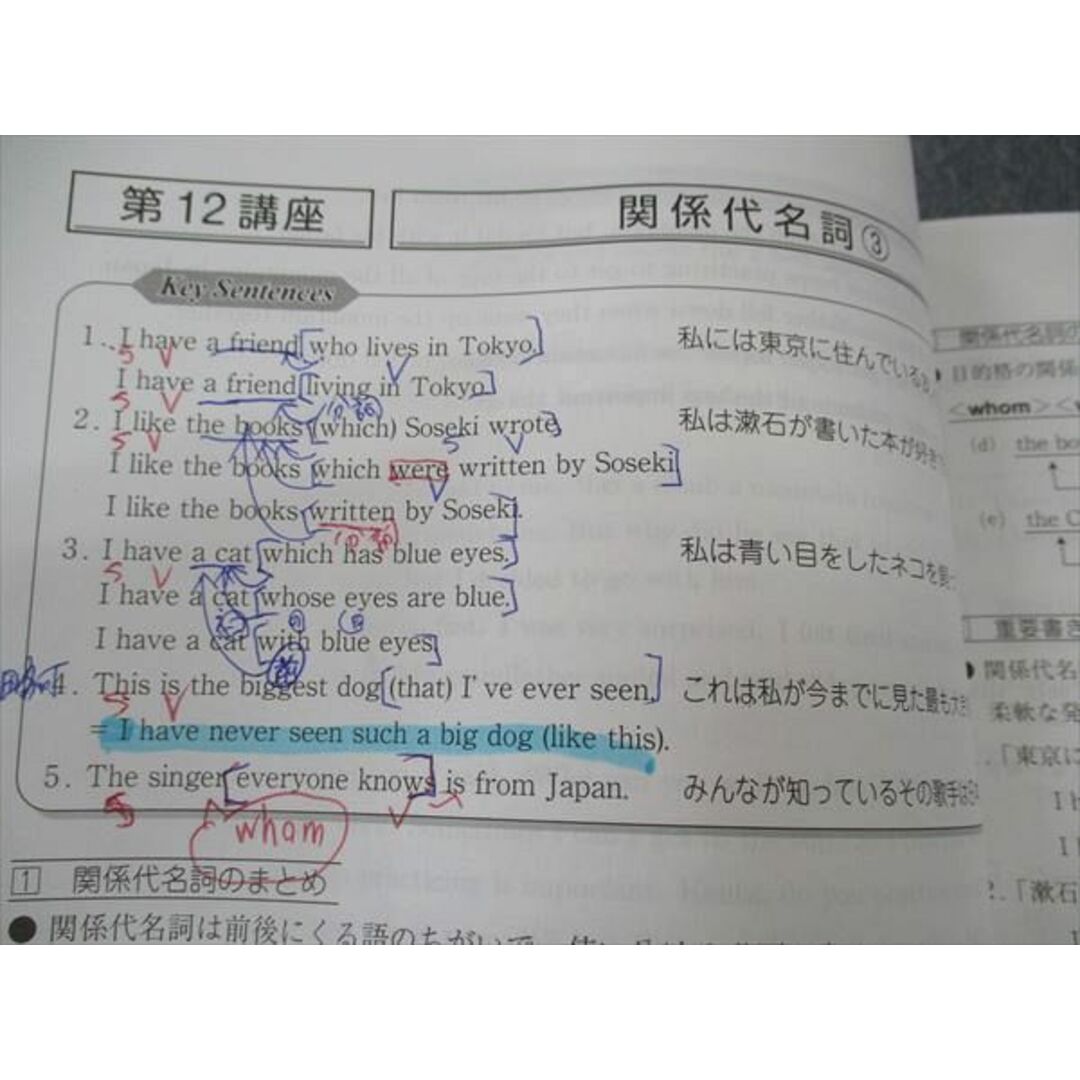 第12講座
関係代名詞③
Key Sentences
1. I have a friend who lives in Tokyo. 私には東京に住んでいる
S V
I have a friend living in Tokyo.
S V (分詞)
2. I like the books (which) Soseki wrote. 私は漱石が書いた本が好き
S V S V
I like the books which were written by Soseki.
V
I like the books written by Soseki.
(分詞)
3. I have a cat which has blue eyes. 私は青い目をしたネコを
S V
I have a cat whose eyes are blue.
I have a cat with blue eyes.
前
4. This is the biggest dog (that) I've ever seen. これは私が今までに見た最も大
S V
= I have never seen such a big dog (like this).
5. The singer everyone knows is from Japan. みんなが知っているその歌手は
S V
wham
1 関係代名詞のまとめ
● 関係代名詞は前後にくる語のちがいで、
目的格の関係
<whom>
(d) the bo
(e) the C
重要書き
関係代名
柔軟な発
「東京に
I h
I l
2.「漱石